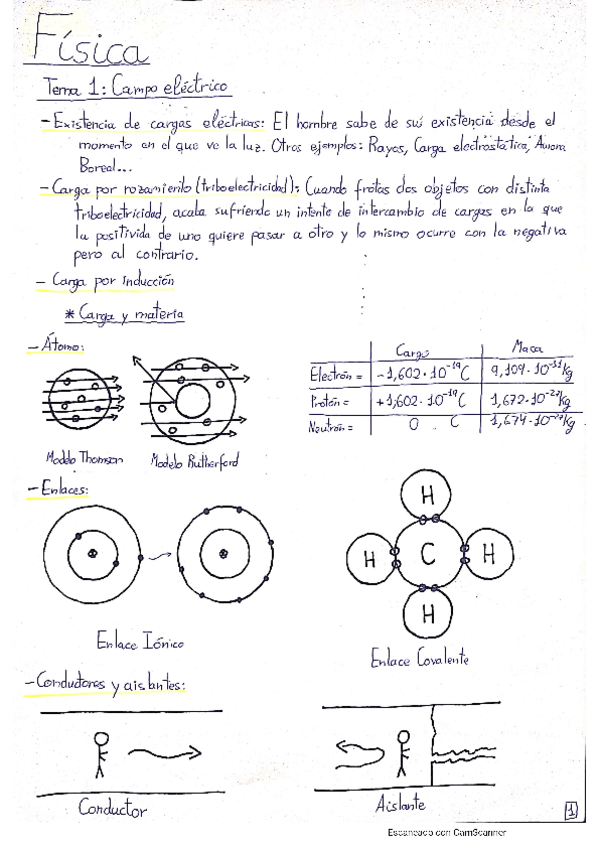 Física
Tema 1: Campo eléctrico
- Existencia de cargas eléctricas: El hombre sabe de su existencia desde el
momento en el que ve la luz. Otros ejemplos: Rayos, Carga electrostática, Aurora
Boreal...
- Carga por rozamiento (triboelectricidad): Cuando frotas dos objetos con distinta
triboelectricidad, acaba sufriendo un intento de intercambio de cargas en la que
la positivida de uno quiere pasar a otro y lo mismo ocurre con la negativa
pero al contrario.
- Carga por inducción
* Carga y materia
- Átomo:
Carga Masa
Electrón = -1,602·10⁻¹⁹ C 9,109·10⁻³¹ kg
Protón = +1,602·10⁻¹⁹ C 1,672·10⁻²⁷ kg
Neutrón = 0 C 1,674·10⁻²⁷ kg
Modelo Thomson Modelo Rutherford
- Enlaces:
H
H C H
H
Enlace Iónico
Enlace Covalente
- Conductores y aislantes:
Conductor
Aislante
1
Escaneado con CamScanner